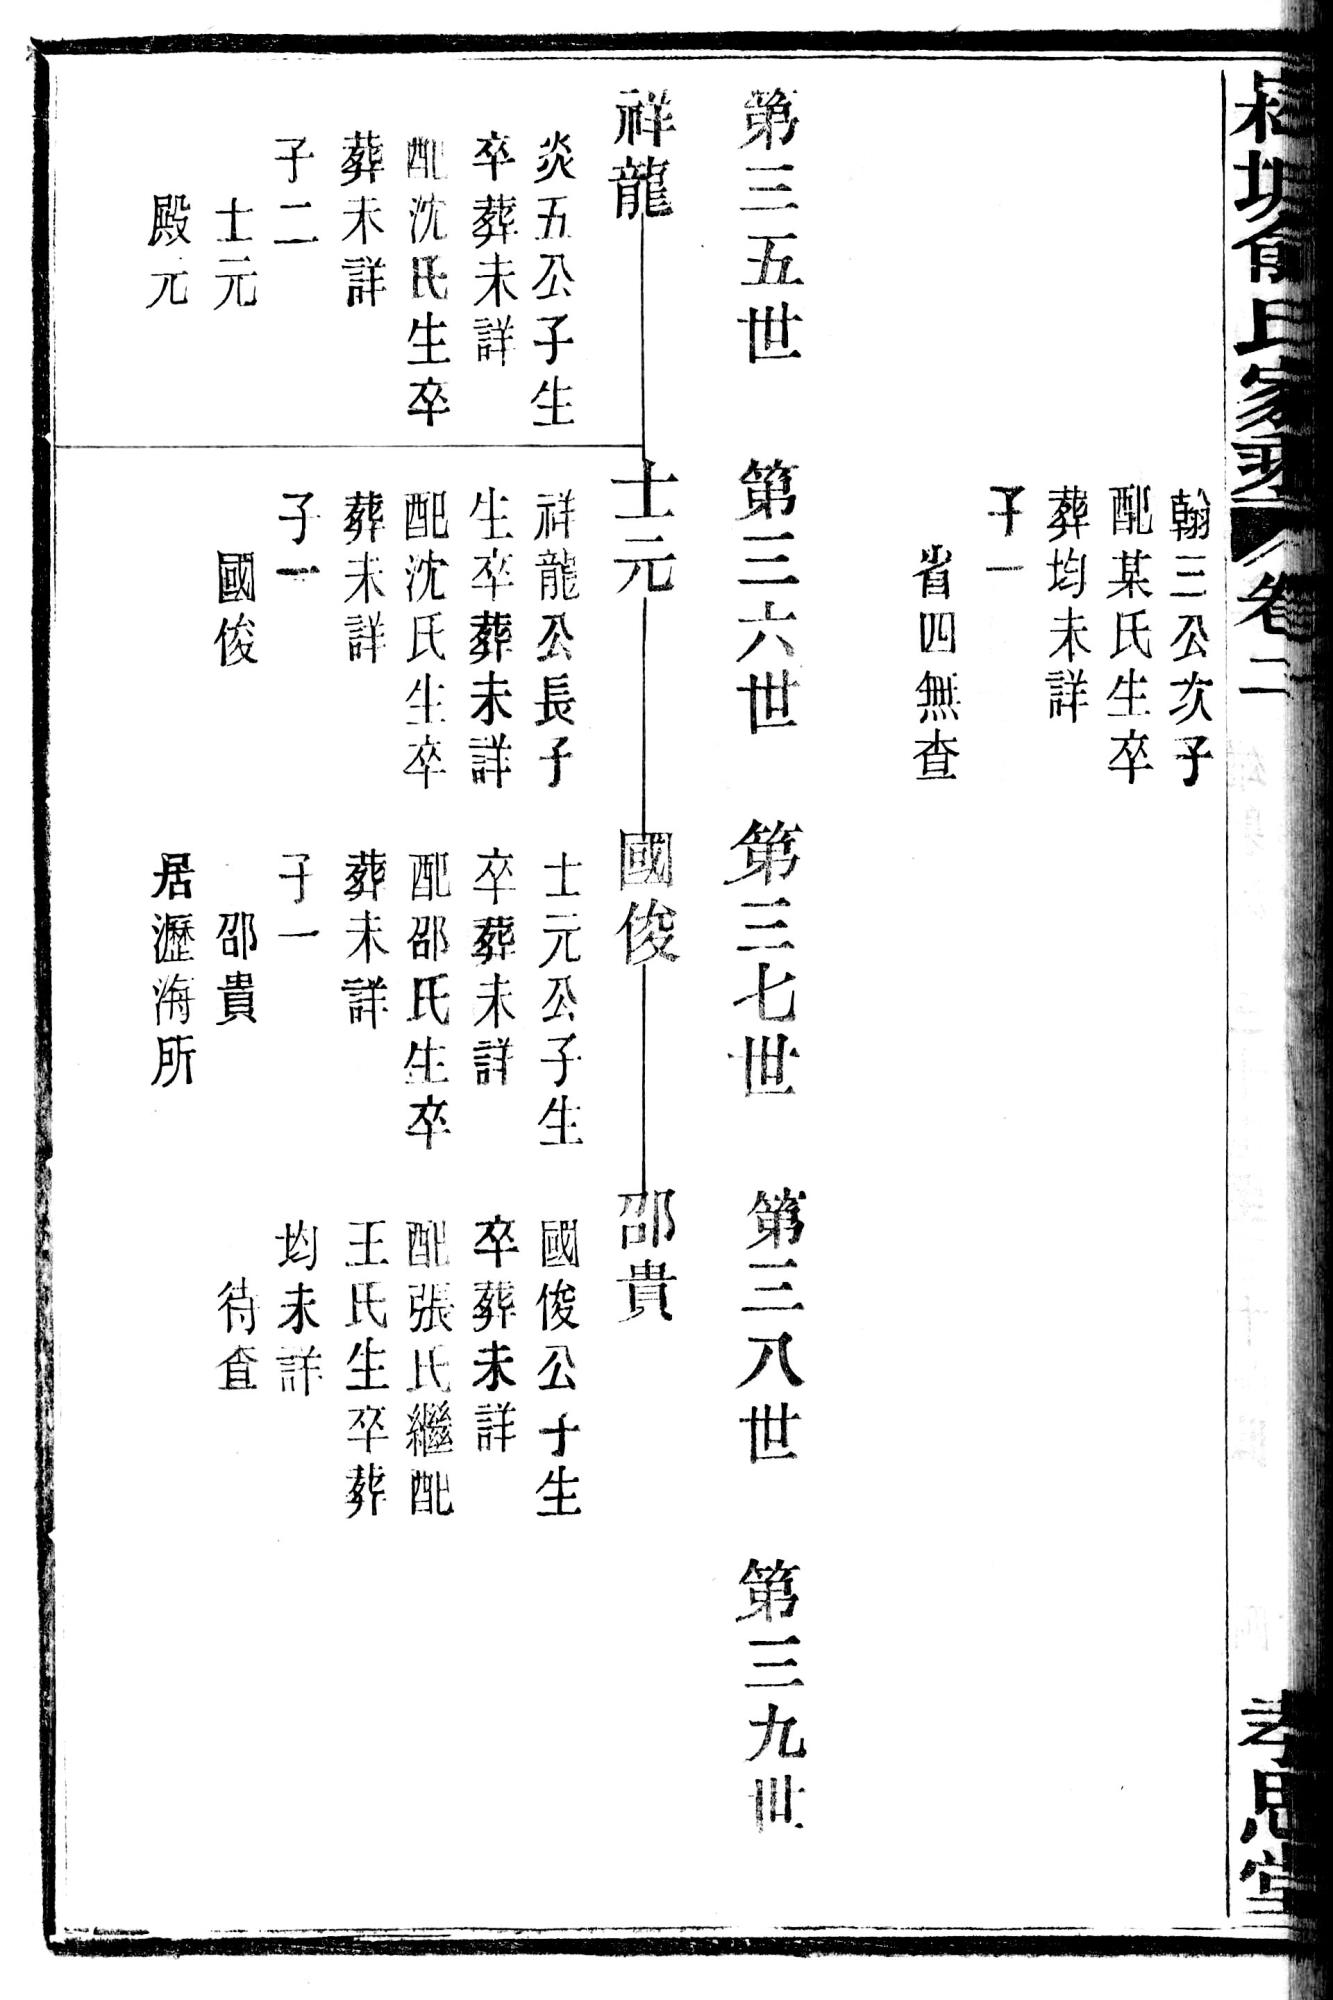 俞氏家乘 卷二
孝思堂
翰三公次子
配某氏生卒
葬均未詳
子一
省四無查
第三五世
第三六世
第三七世
第三八世
第三九世
祥龍
炎五公子生
卒葬未詳
配沈氏生卒
葬未詳
子二
士元
殿元
士元
祥龍公長子
生卒葬未詳
配沈氏生卒
葬未詳
子一
國俊
國俊
士元公子生
卒葬未詳
配邵氏生卒
葬未詳
子一
邵貴
居瀝海所
邵貴
國俊公子生
卒葬未詳
配張氏繼配
王氏生卒葬
均未詳
待查